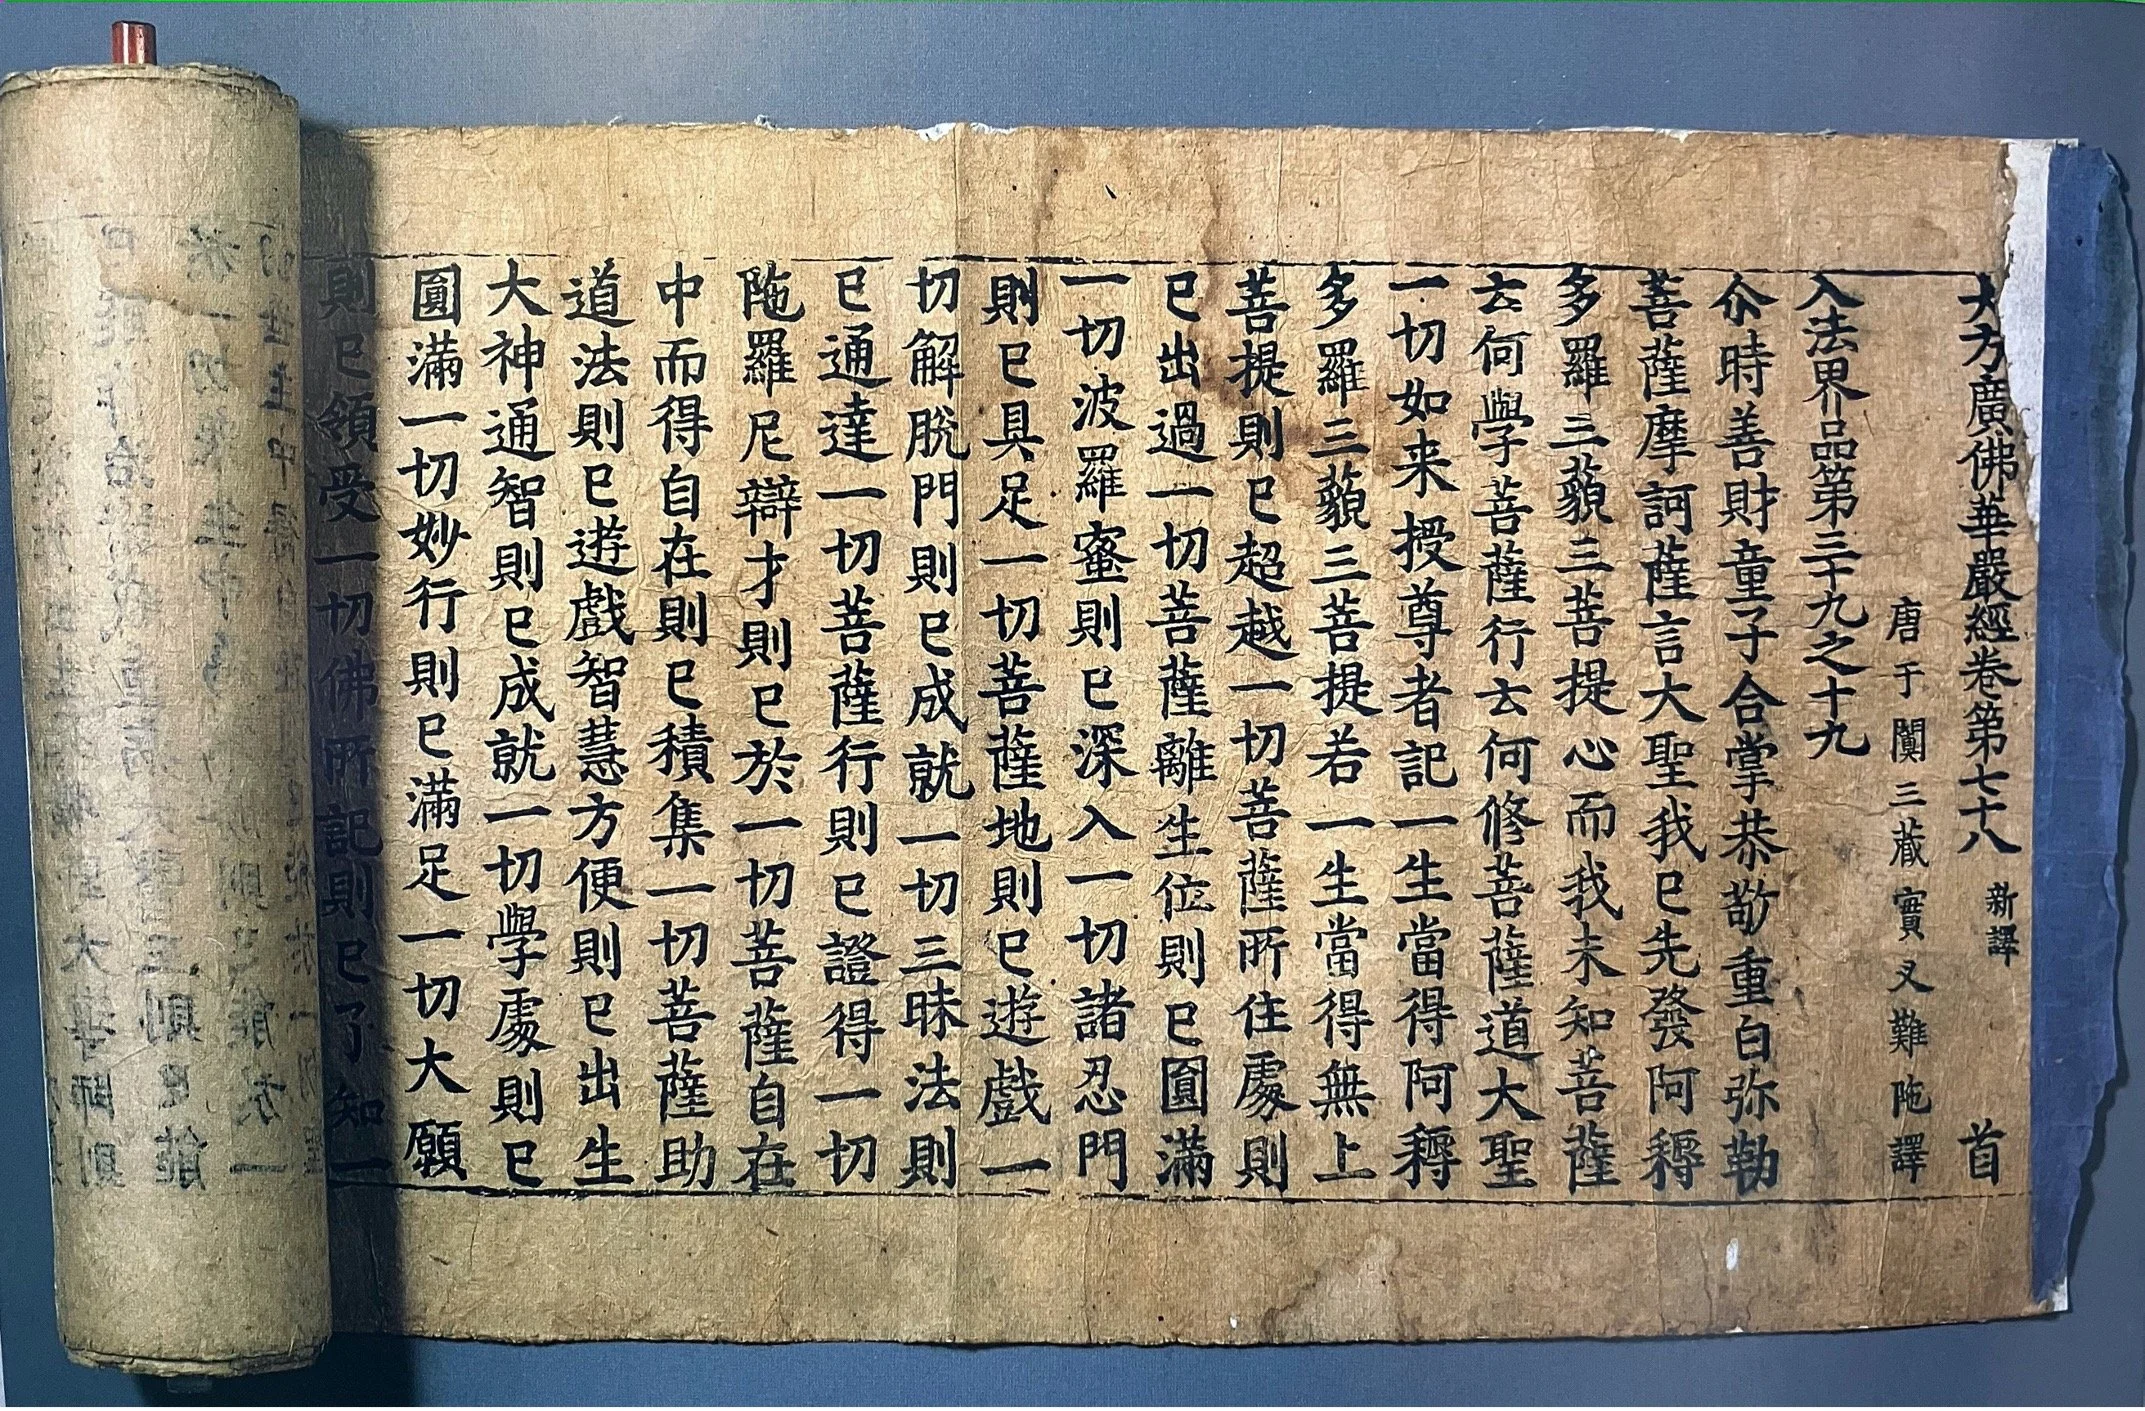 大方廣佛華嚴經卷第七十八 新譯 首
唐于闐三藏實叉難陁譯
入法界品第三十九之十九
尒時善財童子合掌恭敬重白弥勒
菩薩摩訶薩言大聖我已先發阿耨
多羅三藐三菩提心而我未知菩薩
云何學菩薩行云何修菩薩道大聖
一切如来授尊者記一生當得阿耨
多羅三藐三菩提若一生當得無上
菩提則已超越一切菩薩所住處則
已出過一切菩薩離生位則已圓滿
一切波羅蜜則已深入一切諸忍門
則已具足一切菩薩地則已遊戲一
切解脫門則已成就一切三昧法則
已通達一切菩薩行則已證得一切
陁羅尼辯才則已於一切菩薩自在
中而得自在則已積集一切菩薩助
道法則已遊戲智慧方便則已出生
大神通智則已成就一切學處則已
圓滿一切妙行則已滿足一切大願
則已領受一切佛所記則已了知一